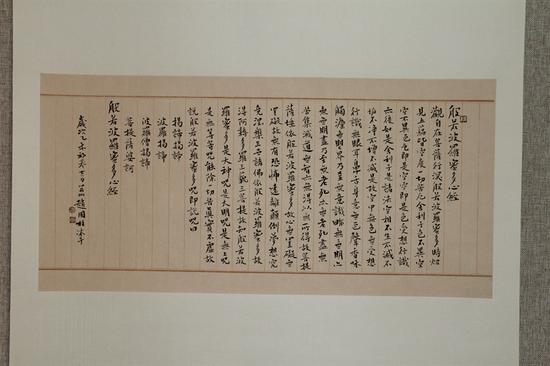 般若波羅蜜多心經
觀自在菩薩行深般若波羅蜜多時照
見五蘊皆空度一切苦厄舍利子色不異空
空不異色色即是空空即是色受想行識
亦復如是舍利子是諸法空相不生不滅不
垢不淨不增不減是故空中無色無受想
行識無眼耳鼻舌身意無色聲香味
觸法無眼界乃至無意識界無無明亦
無無明盡乃至無老死亦無老死盡無
苦集滅道無智亦無得以無所得故菩提
薩埵依般若波羅蜜多故心無罣礙無
罣礙故無有恐怖遠離顛倒夢想究
竟涅槃三世諸佛依般若波羅蜜多故
得阿耨多羅三藐三菩提故知般若波
羅蜜多是大神咒是大明咒是無上咒
是無等等咒能除一切苦真實不虛故
說般若波羅蜜多咒即說咒曰
揭諦揭諦
波羅揭諦
波羅僧揭諦
菩提薩婆訶
般若波羅蜜多心經
歲次乙未初冬 趙國 沐手